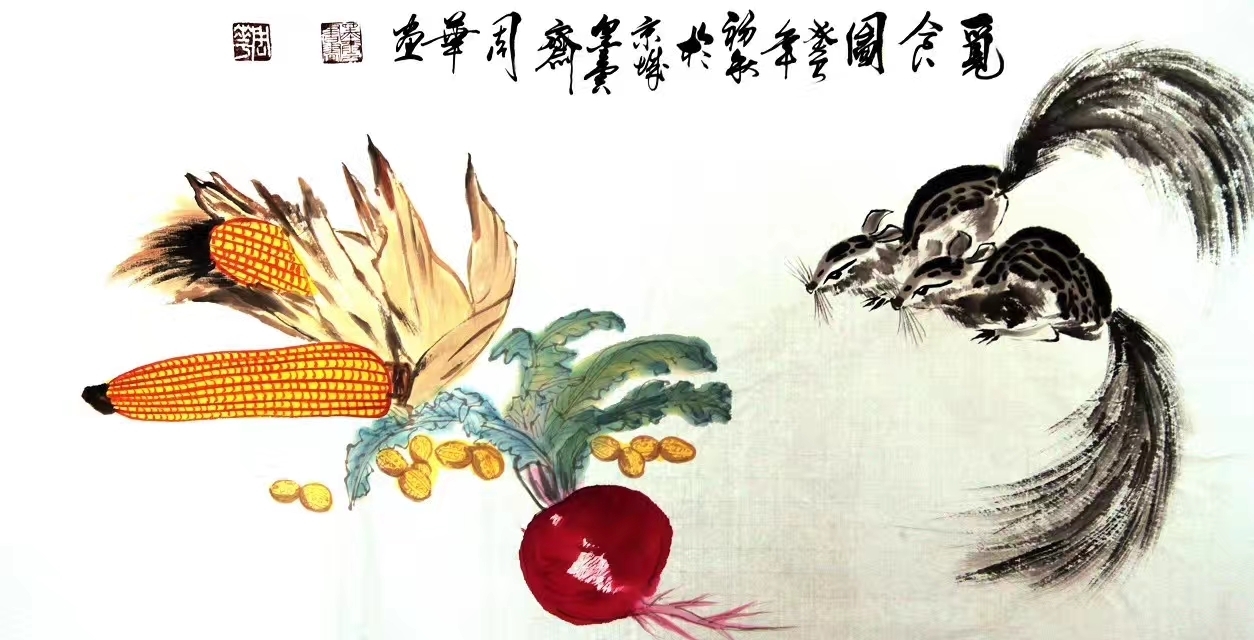 覓食圖癸巳年初秋於京城齋周華畫